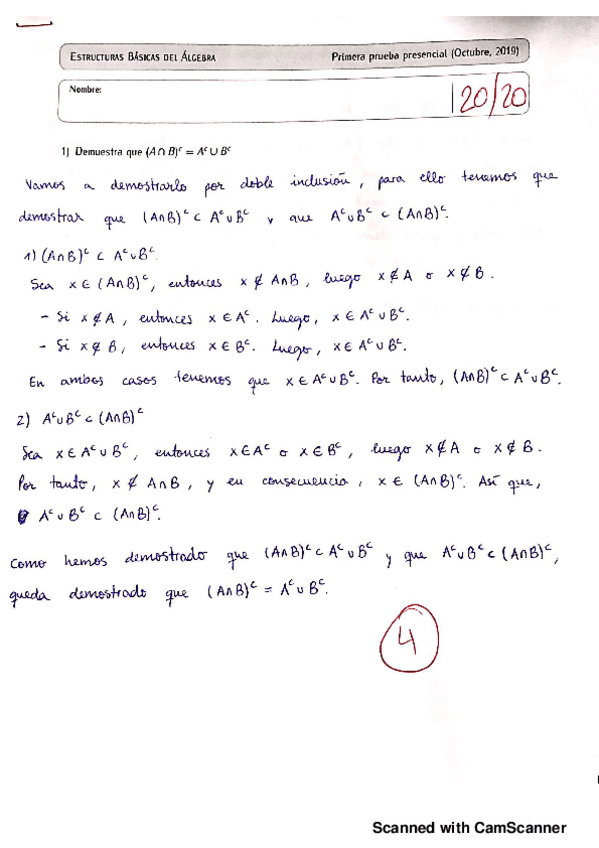 ESTRUCTURAS BÁSICAS DEL ÁLGEBRA Primera prueba presencial (Octubre, 2019)
Nombre: 20/20
1) Demuestra que (A ∩ B)ᶜ = Aᶜ ∪ Bᶜ
Vamos a demostrarlo por doble inclusión, para ello tenemos que
demostrar que (A∩B)ᶜ ⊂ Aᶜ∪Bᶜ y que Aᶜ∪Bᶜ ⊂ (A∩B)ᶜ.
1) (A∩B)ᶜ ⊂ Aᶜ∪Bᶜ.
Sea x ∈ (A∩B)ᶜ, entonces x ∉ A∩B, luego x ∉ A o x ∉ B.
- Si x ∉ A, entonces x ∈ Aᶜ. Luego, x ∈ Aᶜ∪Bᶜ.
- Si x ∉ B, entonces x ∈ Bᶜ. Luego, x ∈ Aᶜ∪Bᶜ.
En ambos casos tenemos que x ∈ Aᶜ∪Bᶜ. Por tanto, (A∩B)ᶜ ⊂ Aᶜ∪Bᶜ.
2) Aᶜ∪Bᶜ ⊂ (A∩B)ᶜ
Sea x ∈ Aᶜ∪Bᶜ, entonces x ∈ Aᶜ o x ∈ Bᶜ, luego x ∉ A o x ∉ B.
Por tanto, x ∉ A∩B, y en consecuencia, x ∈ (A∩B)ᶜ. Así que,
Aᶜ∪Bᶜ ⊂ (A∩B)ᶜ.
Como hemos demostrado que (A∩B)ᶜ ⊂ Aᶜ∪Bᶜ y que Aᶜ∪Bᶜ ⊂ (A∩B)ᶜ,
queda demostrado que (A∩B)ᶜ = Aᶜ∪Bᶜ.
4
Scanned with CamScanner